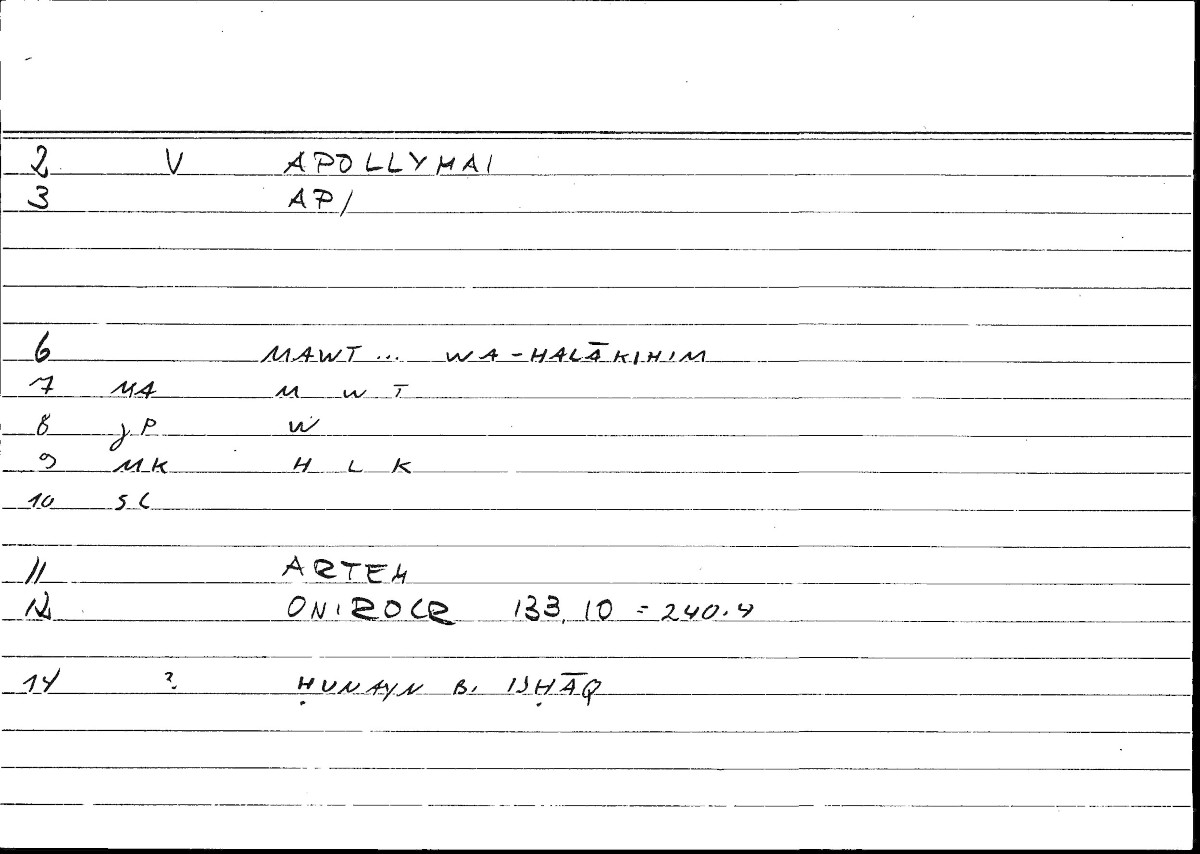 2 V APOLLYMAI
3 AP/
6 MAWT ... WA-HALĀKIHIM
7 MA M W T
8 JP W
9 MK H L K
10 SC
11 ARTEM
12 ONIROCR 133, 10 = 240.4
14 ? ḤUNAYN B. ISḤĀQ